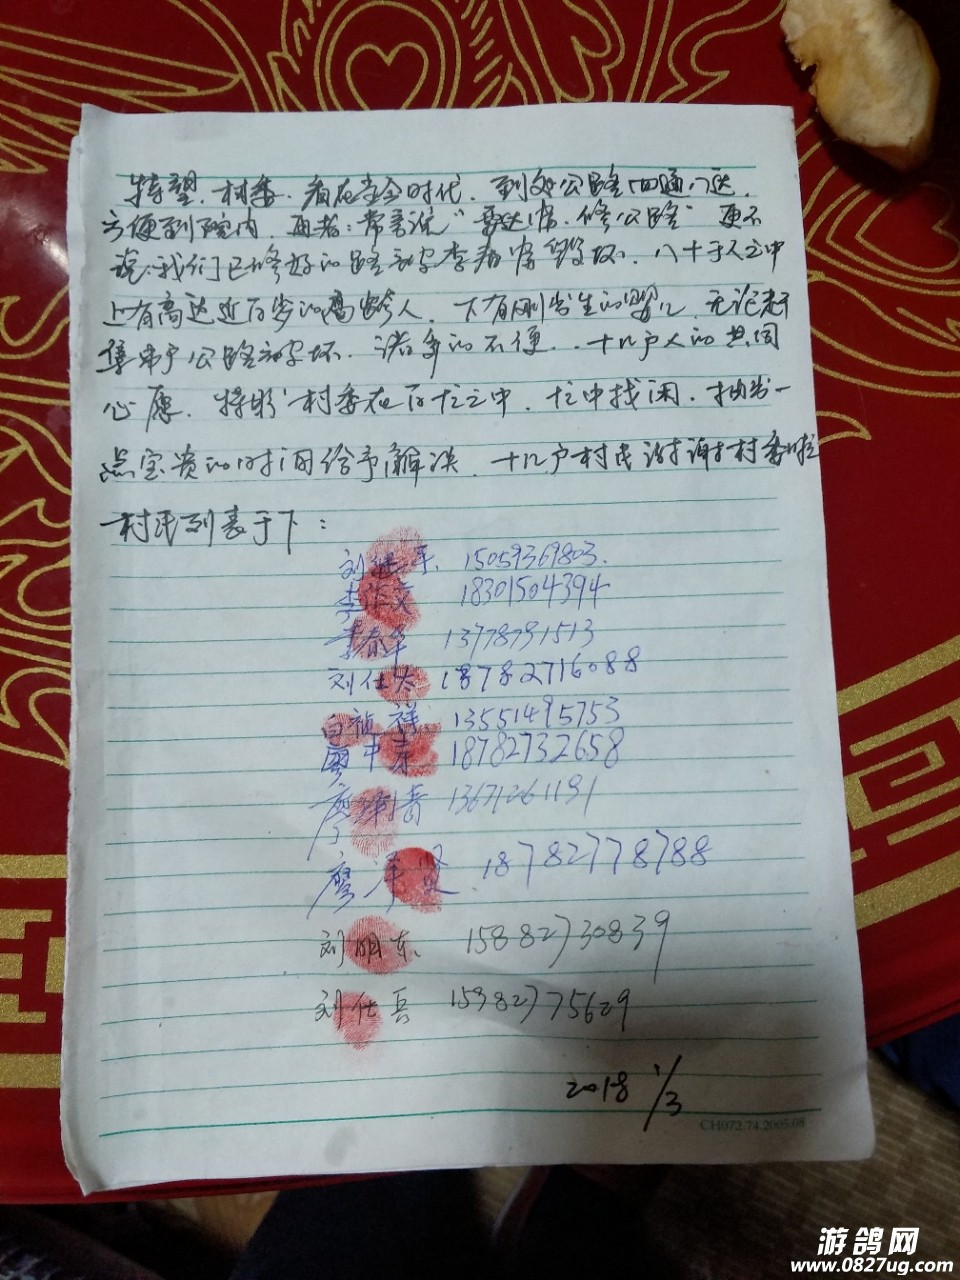 特望，村委．看在当今时代．到处公路四通八达．
方便到院内．再者：常言说"要达康．修公路"更不
说：我们已修好的路　　李春　毁坏．八十于人之中
上有高达近百岁的高龄人．下有刚出生的婴儿．无论老
　　公路　　坏．诸多的不便．．十几户人的共同
心愿．特盼村委在百忙之中．忙中找闲．抽出一
点宝贵的时间给予解决．十几户村民谢谢村委啦
村民列表于下：
刘继平．15059369803.
李　文　18301504394
李春华　13778791513
刘仕　18782716088
白祯祥．13551495753
中　18782732658
廖　春　13671261191
廖泽贤．18782778788
刘明东．15882730839
刘仕兵　15982775629
2018 1/3
CH072.74.2005.08
游鸽网
www.0827ug.com